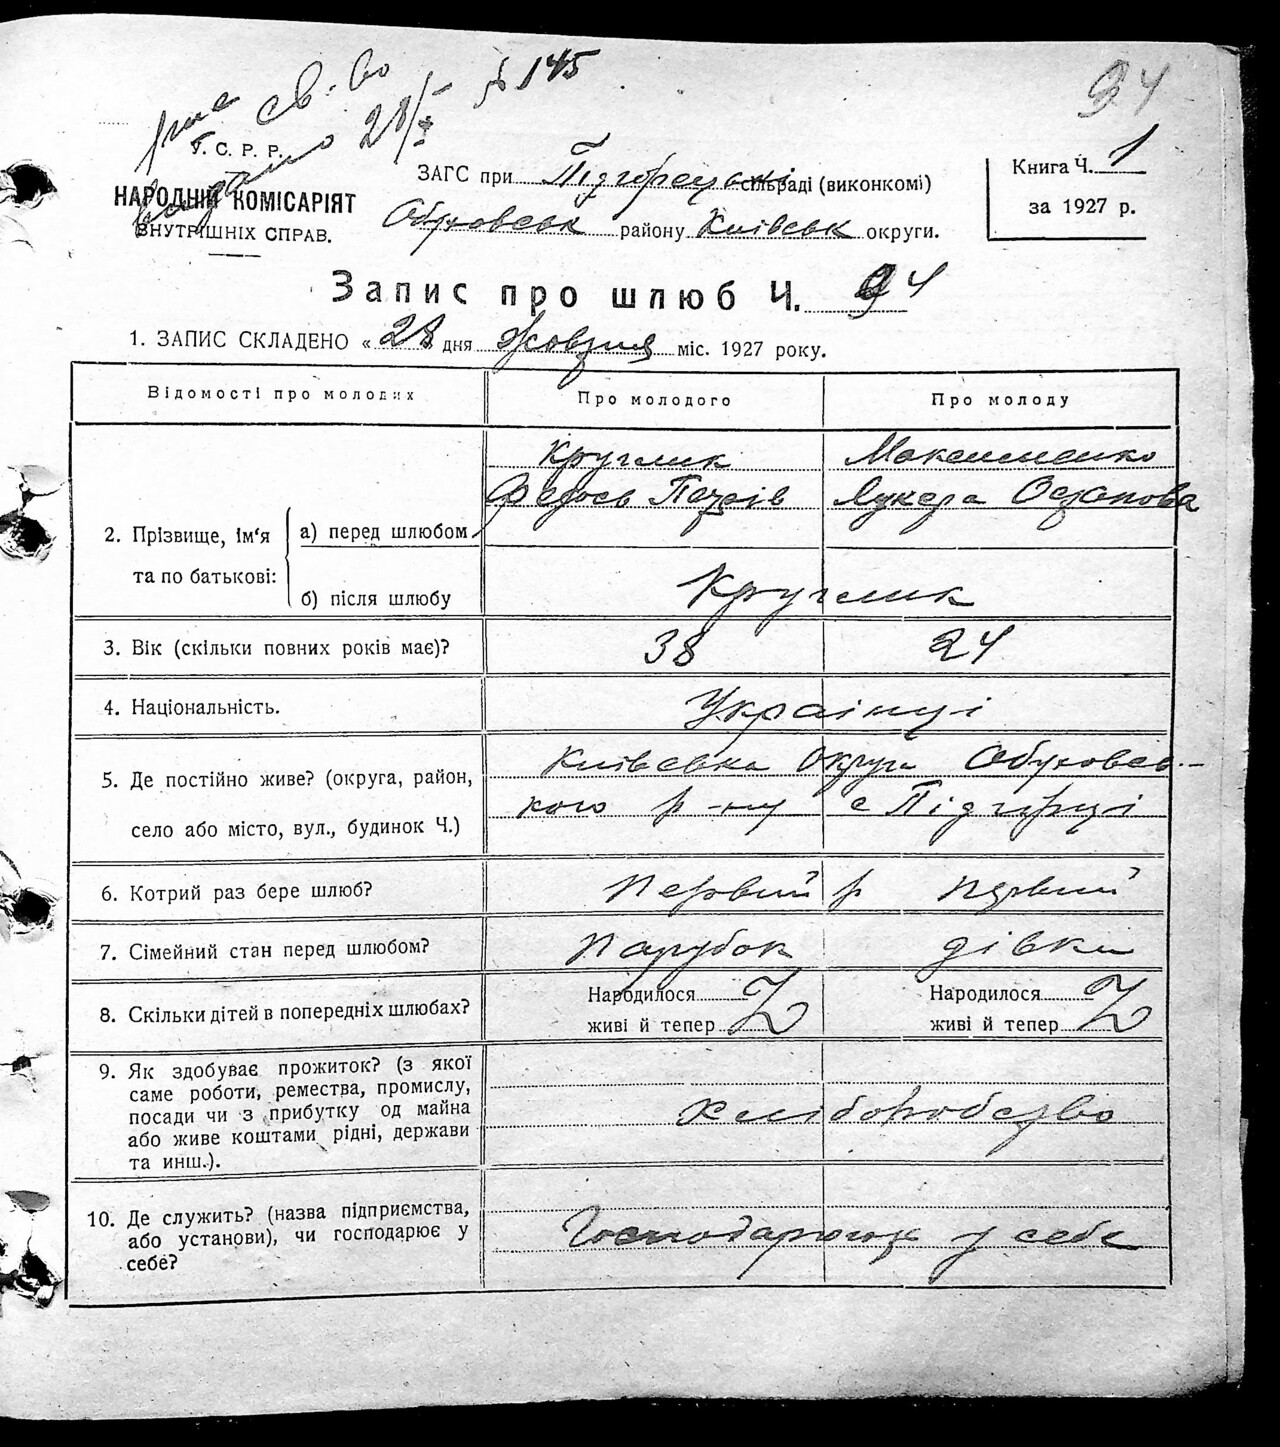 св-во
видано 28/X № 145
94
У. С. Р. Р.
НАРОДНІЙ КОМІСАРІЯТ
ВНУТРІШНІХ СПРАВ.
ЗАГС при Підгорецькі сільраді (виконкомі)
Обуховськ району Київськ округи.
Книга Ч. 1
за 1927 р.
Запис про шлюб Ч. 94
1. ЗАПИС СКЛАДЕНО « 28 » дня Жовтня міс. 1927 року.
Відомості про молодих Про молодого Про молоду
2. Прізвище, ім‘я та по батькові:
а) перед шлюбом
Круглик Максименко
Федось Петрів Лукера Остапова
б) після шлюбу Круглик
3. Вік (скільки повних років має)? 38 24
4. Національність. Українці
5. Де постійно живе? (округа, район,
село або місто, вул., будинок Ч.)
Київська Округа Обуховсь-
кого р-ну с Підгірці
6. Котрий раз бере шлюб? Первий р первий
7. Сімейний стан перед шлюбом? Парубок дівка
8. Скільки дітей в попередніх шлюбах?
Народилося Z Народилося Z
живі й тепер живі й тепер
9. Як здобуває прожиток? (з якої
саме роботи, ремества, промислу,
посади чи з прибутку од майна
або живе коштами рідні, держави
та инш.).
хліборобство
10. Де служить? (назва підприємства,
або установи), чи господарює у
себе?
Господарюють у себе